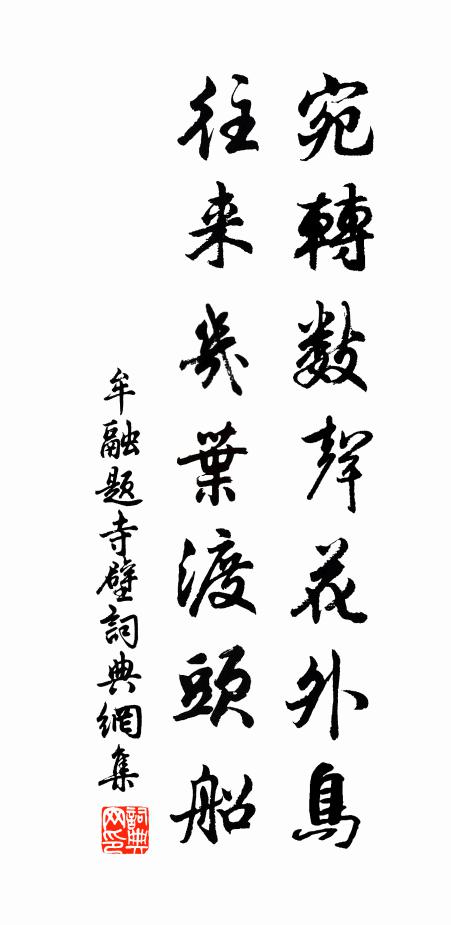 宛轉數聲花外鳥
往来幾葉渡頭船
牟融題寺壁詞典網集
詞典网印